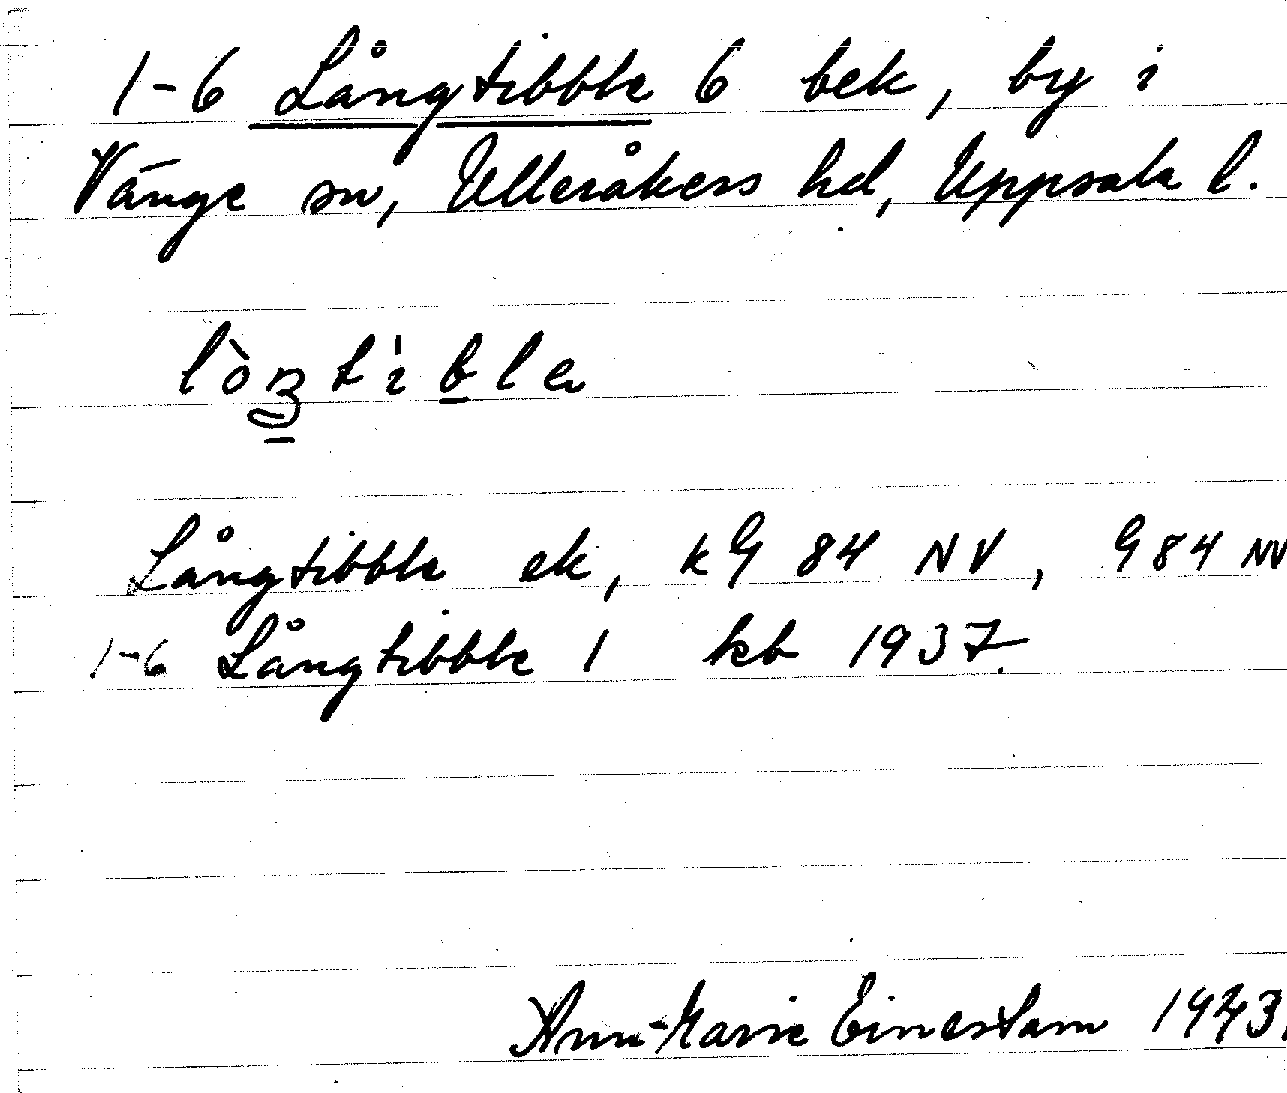 1-6 Långtibble 6 bek, by i
Vänge sn, Ulleråkers hd, Uppsala l.
Långtibble ek, kG 84 NV, G 84 NV
1-6 Långtibble 1 kb 1937.
Ann-Marie Einerstam 1943.